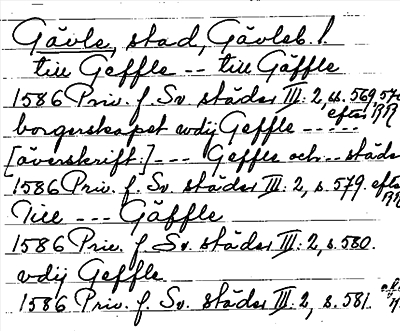 Gävle, stad, Gävleb. l.
till Geffle -- till Gäffle
1586 Priv. f. Sv. städer III: 2, ss. 569, 570
efter RR
borgerskapet wdij Geffle -----
[överskrift:] --- Geffle och -- städer
1586 Priv. f. Sv. städer III: 2, s. 579. efter RR
Till --- Gäffle
1586 Priv. f. Sv. städer III: 2, s. 580.
wdij Geffle
1586 Priv. f. Sv. städer III: 2, s. 581.